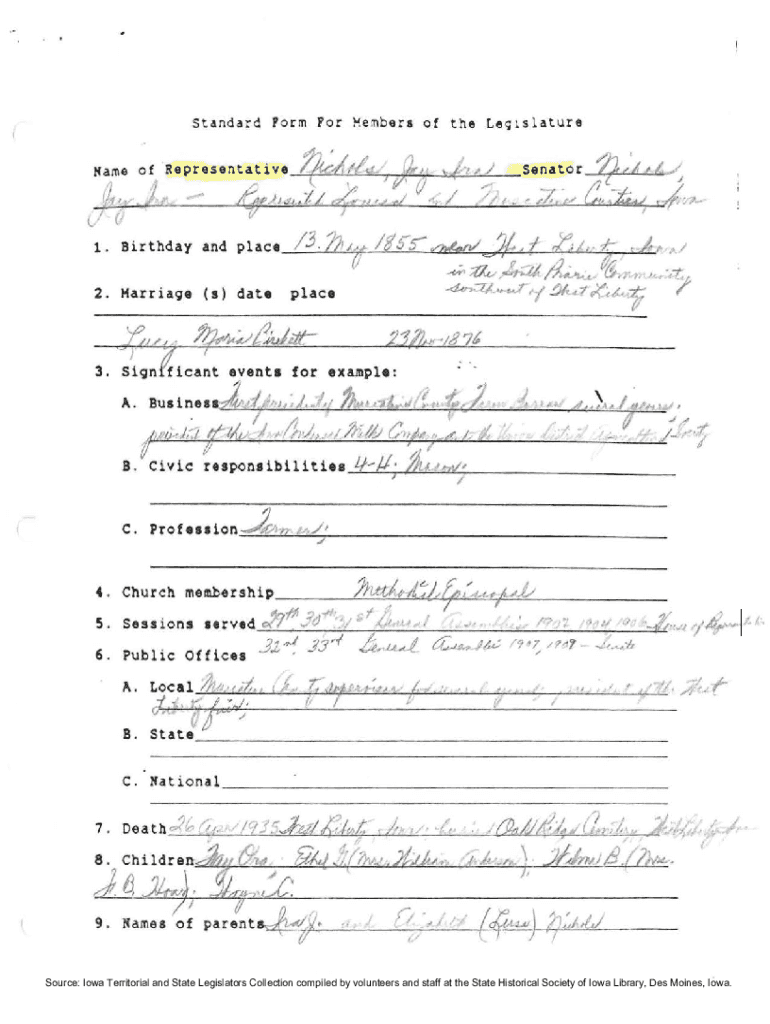 Standard Form For Members of the Legislature
Name of Representative Nichols, Jay Ira Senator Nichols,
Jay Ira — Represented Louisa and Muscatine Counties, Iowa
1. Birthday and place 13 May 1855 near West Liberty, Iowa
in the South Prairie Community
2. Marriage (s) date place southwest of West Liberty
Lucy Maria 23 Nov 1876
3. Significant events for example:
A. Business First president of Muscatine County Farm Bureau several years;
president of the Iowa Condensed Milk Company and to the Union District Agricultural Society
B. Civic responsibilities 4-H; Mason;
C. Profession Farmer;
4. Church membership Methodist Episcopal
5. Sessions served 29th, 30th, 31st General Assemblies 1902, 1904, 1906 - House of
6. Public Offices 32nd, 33rd General Assemblies 1907, 1909 - Senate
A. Local Muscatine County supervisor for several years; president of the West
Liberty fair;
B. State
C. National
7. Death 26 Apr 1935 West Liberty, Iowa; buried Oak Ridge Cemetery, West Liberty, Iowa
8. Children Ora; Ethel G. (Mrs. William Anderson); Wilma B. (Mrs.
B. Hoag); Wayne C.
9. Names of parents Ira J. and Elizabeth Nichols
Source: Iowa Territorial and State Legislators Collection compiled by volunteers and staff at the State Historical Society of Iowa Library, Des Moines, Iowa.